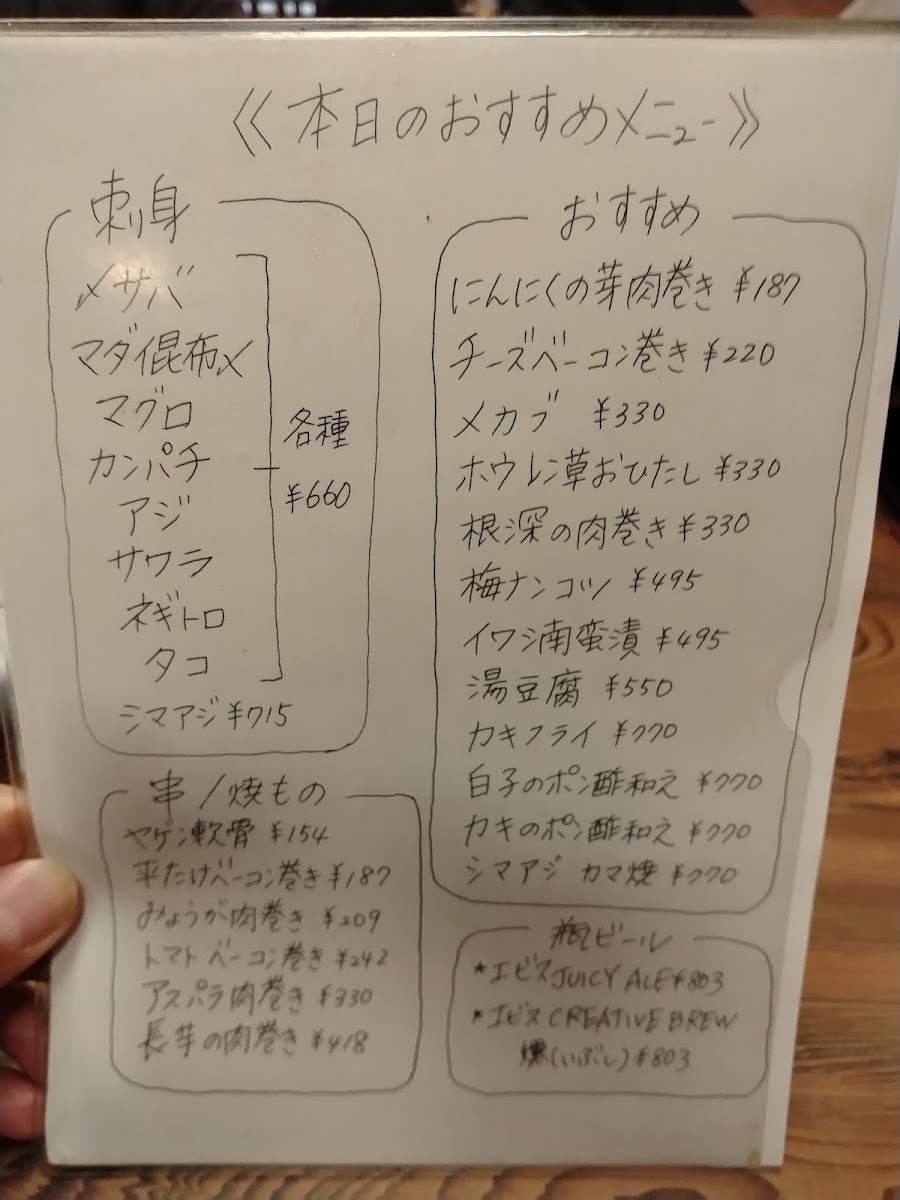 《本日のおすすめメニュー》
刺身
〆サバ
マダイ昆布〆
マグロ
カンパチ
アジ
サワラ
ネギトロ
タコ
各種
¥660
シマアジ ¥715
串/焼もの
ヤゲン軟骨 ¥154
平たけベーコン巻き ¥187
みょうが肉巻き ¥209
トマトベーコン巻き ¥242
アスパラ肉巻き ¥330
長芋の肉巻き ¥418
おすすめ
にんにくの芽肉巻き ¥187
チーズベーコン巻き ¥220
メカブ ¥330
ホウレン草おひたし ¥330
根深の肉巻き ¥330
梅ナンコツ ¥495
イワシ南蛮漬 ¥495
湯豆腐 ¥550
カキフライ ¥770
白子のポン酢和え ¥770
カキのポン酢和え ¥770
シマアジ カマ焼 ¥770
瓶ビール
*エビス JUICY ALE ¥803
*エビス CREATIVE BREW
燻(いぶし) ¥803